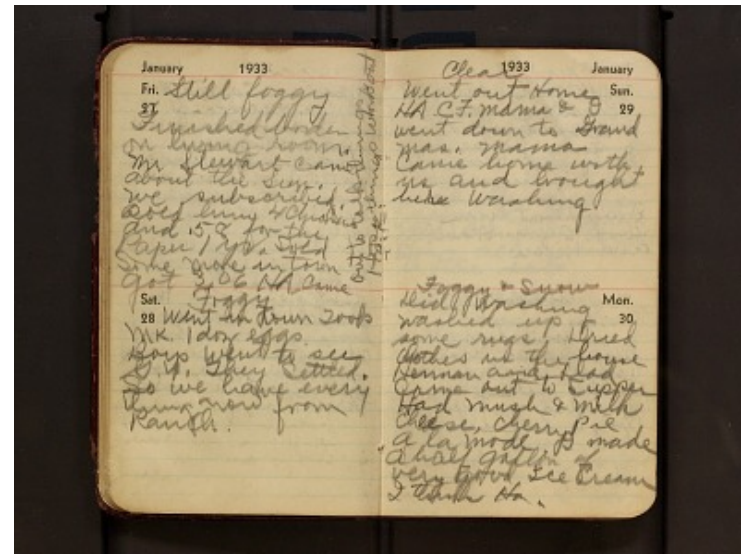 January 1933
Fri. Still foggy
27
Finished border
on living room.
Mr Stewart came
about the Sun.
We subscribed.
Sold him 4 chickens
and .58 for the
Paper 1 yr. Sold
some more in town
Got 2.06 HA came
Foggy
Sat.
28 Went in town took
mk. 1 doz eggs.
Boys went to see
G.W. They settled.
So we have every
thing now from
Ranch.
1933 January
Clear
Went out Home Sun.
HA C.F. Mama & I 29
went down to Grand
mas. Mama
came home with
us and brought
her washing
Foggy & Snow
Did washing Mon.
washed up 30
some rugs, Dried
clothes in the house
Herman and Dad
came out to supper
Had mush & milk
cheese, cherry pie
a la mode. B made
a half gallon of
very good Ice Cream
I think Ha.